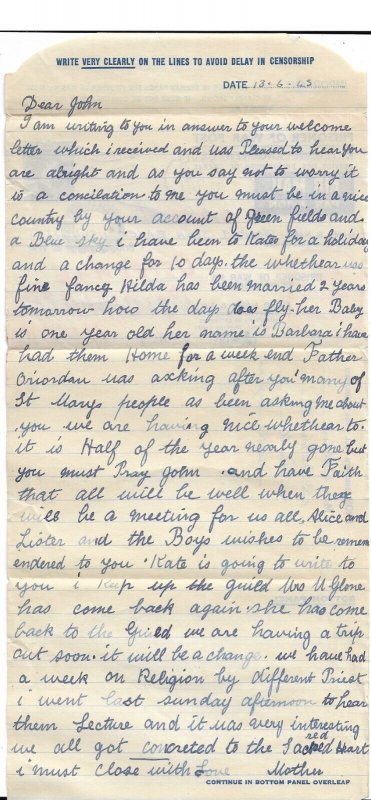 WRITE VERY CLEARLY ON THE LINES TO AVOID DELAY IN CENSORSHIP
DATE 13-6-43
Dear John
I am writing to you in answer to your welcome
letter which i received and was Pleased to hear you
are alright and as you say not to worry it
is a concilation to me you must be in a nice
country by your account of Green fields and
a Blue sky i have been to Kates for a holiday
and a change for 10 days. the whethear was
fine fancy Hilda has been married 2 years
tomorrow how the days does fly. her Baby
is one year old her name is Barbara i have
had them Home for a week end Father
Oriordan was asking after you many of
St Marys people as been asking me about
you we are having nice whethear to.
it is Half of the year nearly gone but
you must Pray John and have Faith
that all will be well when there
will be a meeting for us all, Alice and
Lister and the Boys wishes to be remem
endered to you. Kate is going to write to
you i Keep up the guild Mrs M Glone
has come back again. she has come
back to the Guild we are having a trip
out soon. it will be a change. we have had
a week on Religion by different Priest
i went last sunday afternoon to hear
them Lecture and it was very interesting
we all got concreted to the Sacred Heart
i must close with Love Mother
CONTINUE IN BOTTOM PANEL OVERLEAF